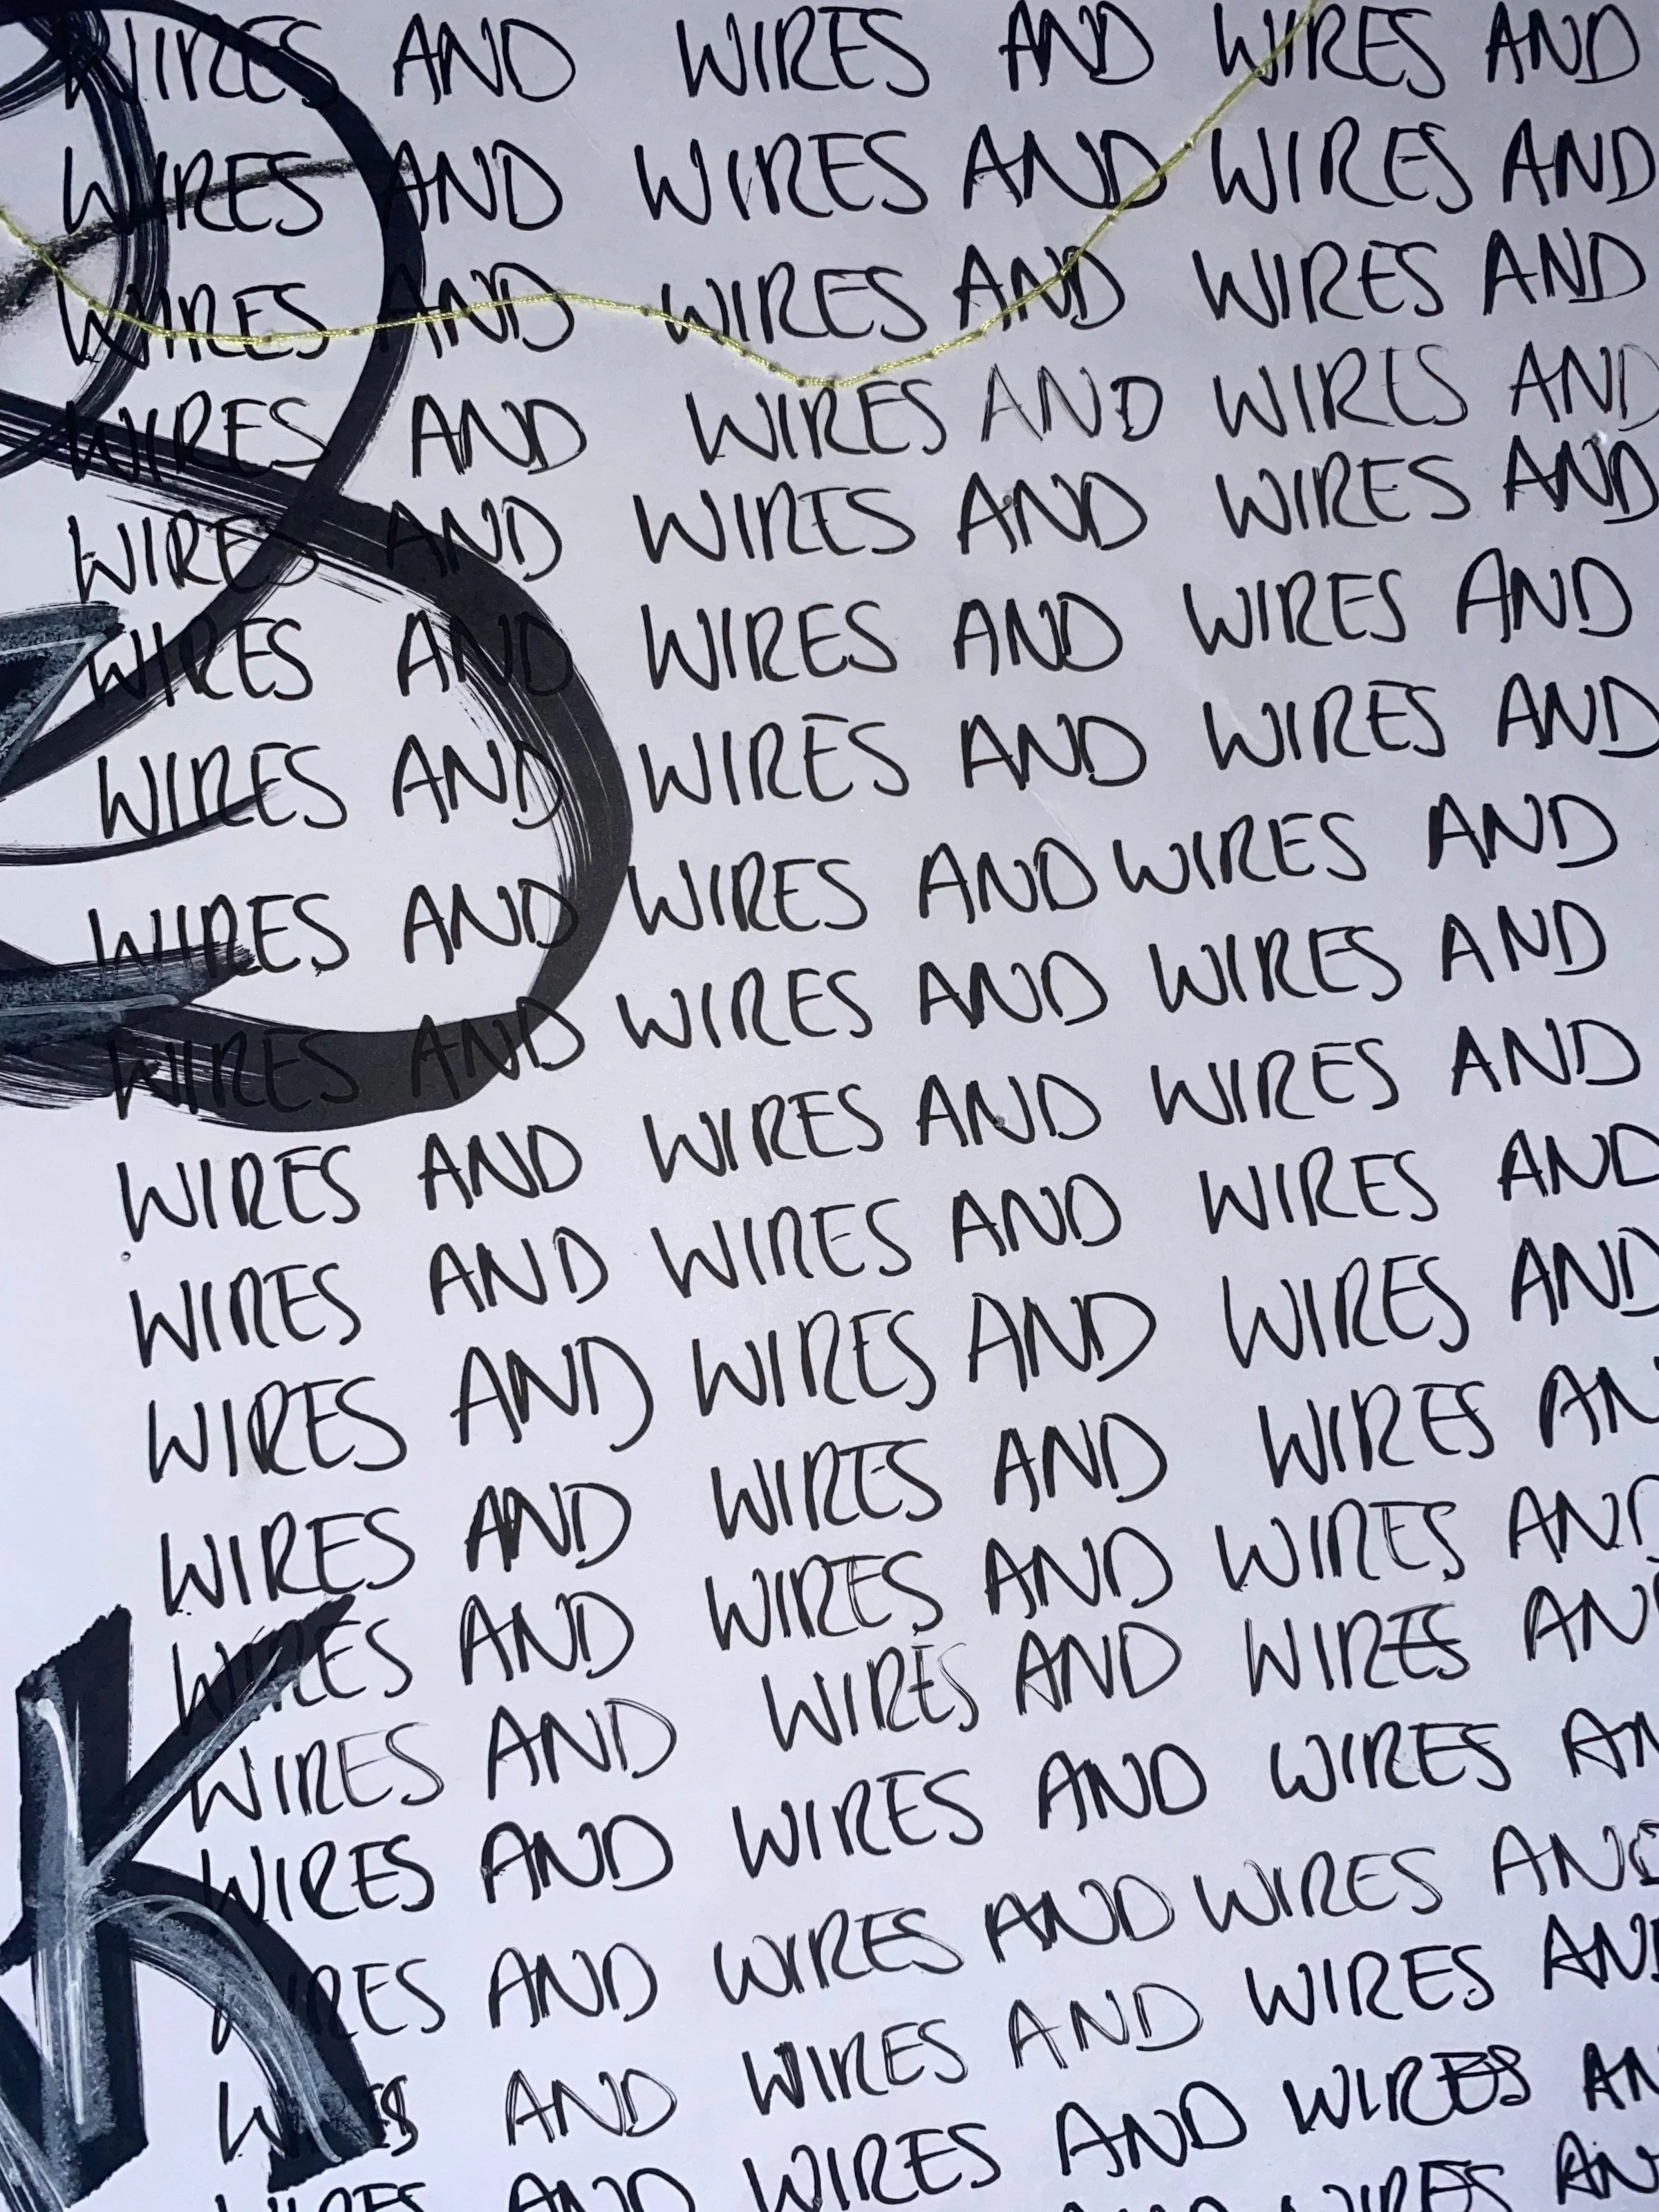 WIRES AND WIRES AND WIRES AND
WIRES AND WIRES AND WIRES AND
WIRES AND WIRES AND WIRES AND
WIRES AND WIRES AND WIRES AND
WIRES AND WIRES AND WIRES AND
WIRES AND WIRES AND WIRES AND
WIRES AND WIRES AND WIRES AND
WIRES AND WIRES AND WIRES AND
WIRES AND WIRES AND WIRES AND
WIRES AND WIRES AND WIRES AND
WIRES AND WIRES AND WIRES AND
WIRES AND WIRES AND WIRES AND
WIRES AND WIRES AND WIRES AN
WIRES AND WIRES AND WIRES AND
WIRES AND WIRES AND WIRES AN
WIRES AND WIRES AND WIRES AN
WIRES AND WIRES AND WIRES AND
WIRES AND WIRES AND WIRES AND
WIRES AND WIRES AND WIRES AN
WIRES AN
K